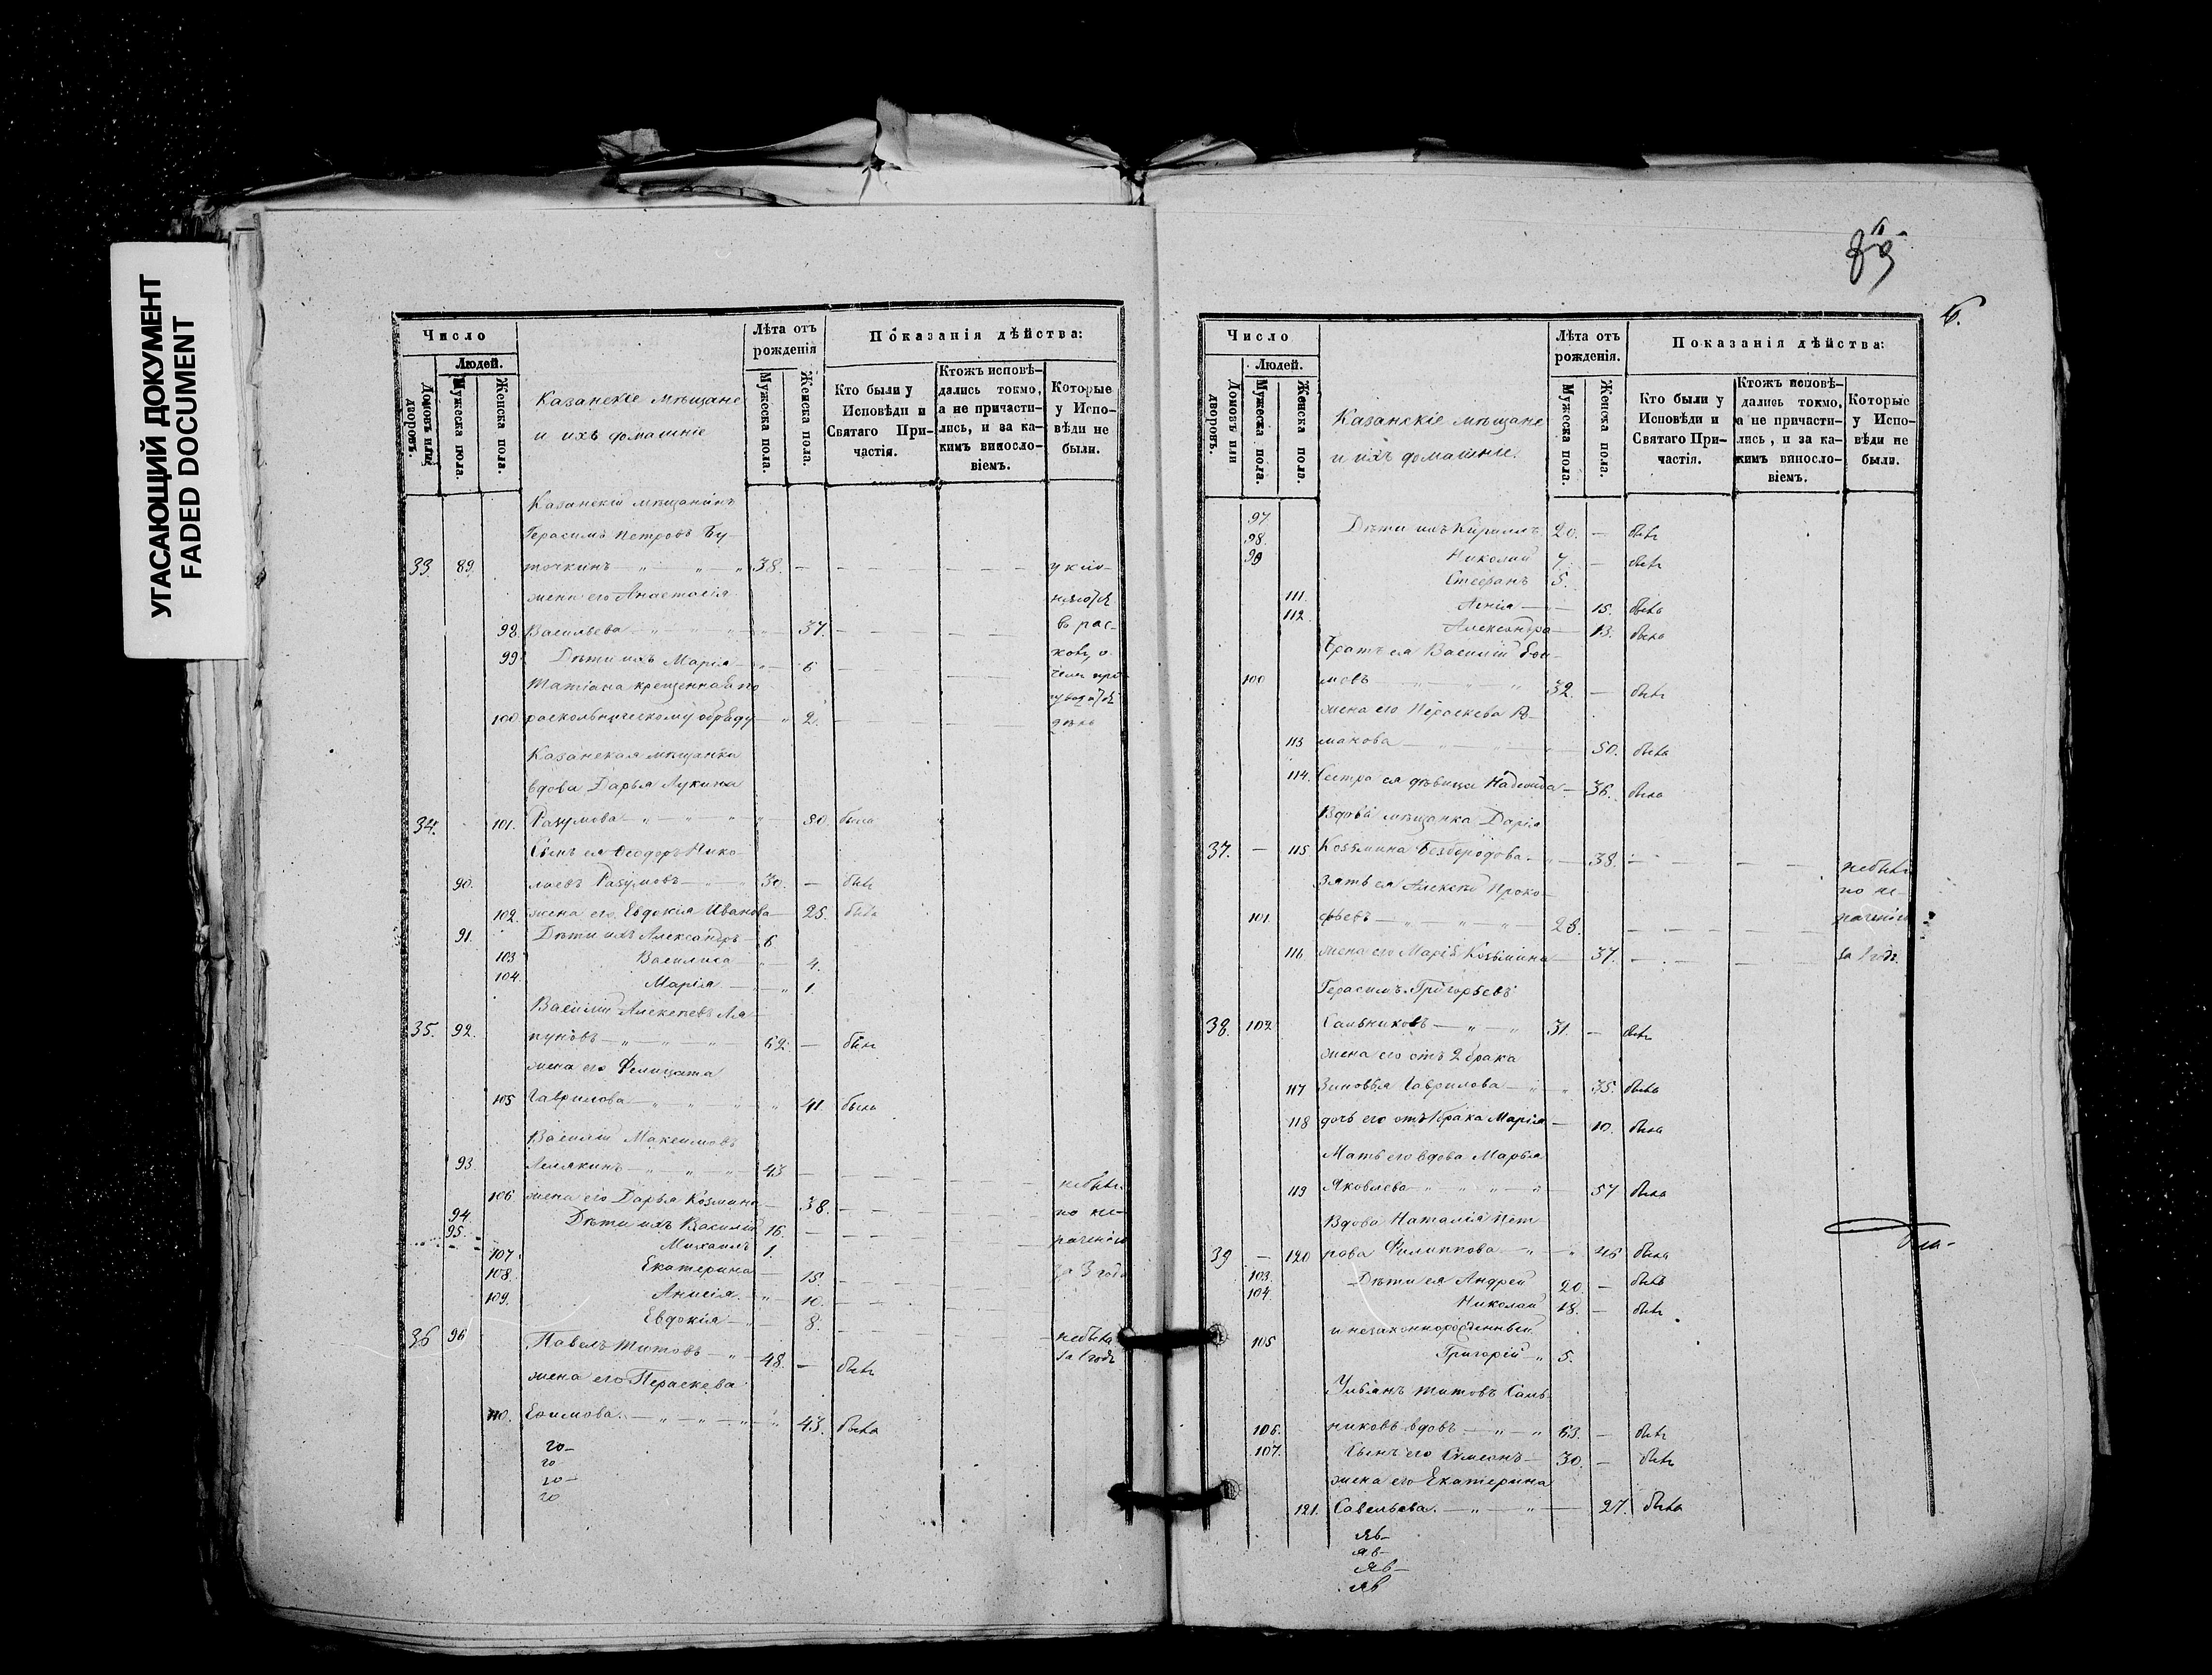 УГАСАЮЩИЙ ДОКУМЕНТ
FADED DOCUMENT
Число
Людей.
Домовъ или дворовъ.
Мужеска пола.
Женска пола.
Казанскіе мѣщане
и ихъ домашніе
Лѣта отъ рожденія
Мужеска пола.
Женска пола.
Показанія дѣйства:
Кто были у Исповѣди и Святаго Причастія.
Ктожъ исповѣдались токмо, а не причастились, и за каким винословіемъ.
Которые у Исповѣди не были.
Казанскій мѣщанинъ
Герасимъ Петровъ Бу-
33. 89. точкинъ — „ — „ — „ 38. — — — — укло-
жена его Анастасія няются
98. Васильева — „ — „ — „ — 37. — — — въ рас-
99 Дѣти ихъ Марія — „ — 6 — — колъ, о
Татіана крещенная по чемъ про-
100 раскольническому обряду — „ 2. — — — дѣло
Казанская мѣщанка
вдова Дарья Лукина
34. 101. Разумова — „ — „ — „ — 80. была
Сынъ ея Ѳеодоръ Нико-
90. лаевъ Разумовъ — „ — 30. — былъ
102. жена его Евдокія Иванова — 25. была
91. Дѣти ихъ Александръ — 6
103 Василиса — 4.
104. Марія — „ 1.
Василій Алексѣевъ Ля-
35. 92. пуновъ — „ — „ — „ 62. — былъ
жена его Фелицата
105 Гаврилова — „ „ „ „ 41. была
Василій Максимовъ
93. — „ — „ — 43 — — — небылъ
106 жена его Дарья Козмина — 38. — — по не-
94. Дѣти ихъ Василій 16. —
95. Михаилъ 1. — раченію
107. Екатерина — 15. — за 3 года
108. Анисія — „ 10. —
109. Евдокія — 8. — — — небыла
36 96 Павелъ Титовъ — „ — 48. — былъ за 1 годъ
жена его Параскева
110. Ефимова. — „ — „ — „ 43. была
го-
го-
го-
го
89
6.
Число
Людей.
Домовъ или дворовъ.
Мужеска пола.
Женска пола.
Казанскіе мѣщане
и ихъ домашніе.
Лѣта отъ рожденія.
Мужеска пола.
Женска пола.
Показанія дѣйства:
Кто были у Исповѣди и Святаго Причастія.
Ктожъ исповѣдались токмо, а не причастились, и за каким винословіемъ.
Которые у Исповѣди не были.
97 Дѣти ихъ Кириллъ 20. — былъ
98. Николай 7. — былъ
99 Стефанъ 5.
111. — 15. была
112. Александра — 13. была
Братъ ея Василій
100 мовъ — „ — „ — „ 32. — былъ
жена его Параскева Ро-
113 манова — „ — „ — „ 50. была
114. Сестра ея дѣвица Надежда — 36. была
Вдова мѣщанка Дарія
37. — 115 Козьмина Безбородова. — „ — 38. — — — небылъ
Зять ея Алексѣй Проко- по не-
101. фьевъ — „ — „ — „ 28. — — — раченію
116 жена его Марія Козьмина 37. — — за 1 годъ.
Герасимъ Григорьевъ
38. 102 Сальниковъ — „ — „ 31 — былъ
жена его отъ 2 брака
117 Зиновья Гаврилова — „ „ 35. была
118 дочь его отъ 1 брака Марія — 10. была
Мать его вдова Марья
119 Яковлева — „ „ „ „ — 57 была
Вдова Наталія Пет-
39 — 120 рова Филиппова — „ — „ 46 была
103. Дѣти ея Андрей 20. — былъ
104. Николай 18. — былъ
и незаконнорожденный
105 Григорій „ 5.
Ульянъ Титовъ Саль-
106. никовъ вдовъ — „ — „ 63. — былъ
107. Сынъ его Симеонъ — 30. — былъ
жена его Екатерина
121. Савельева. — „ — „ — 27. была
яв-
яв-
яв-
яв